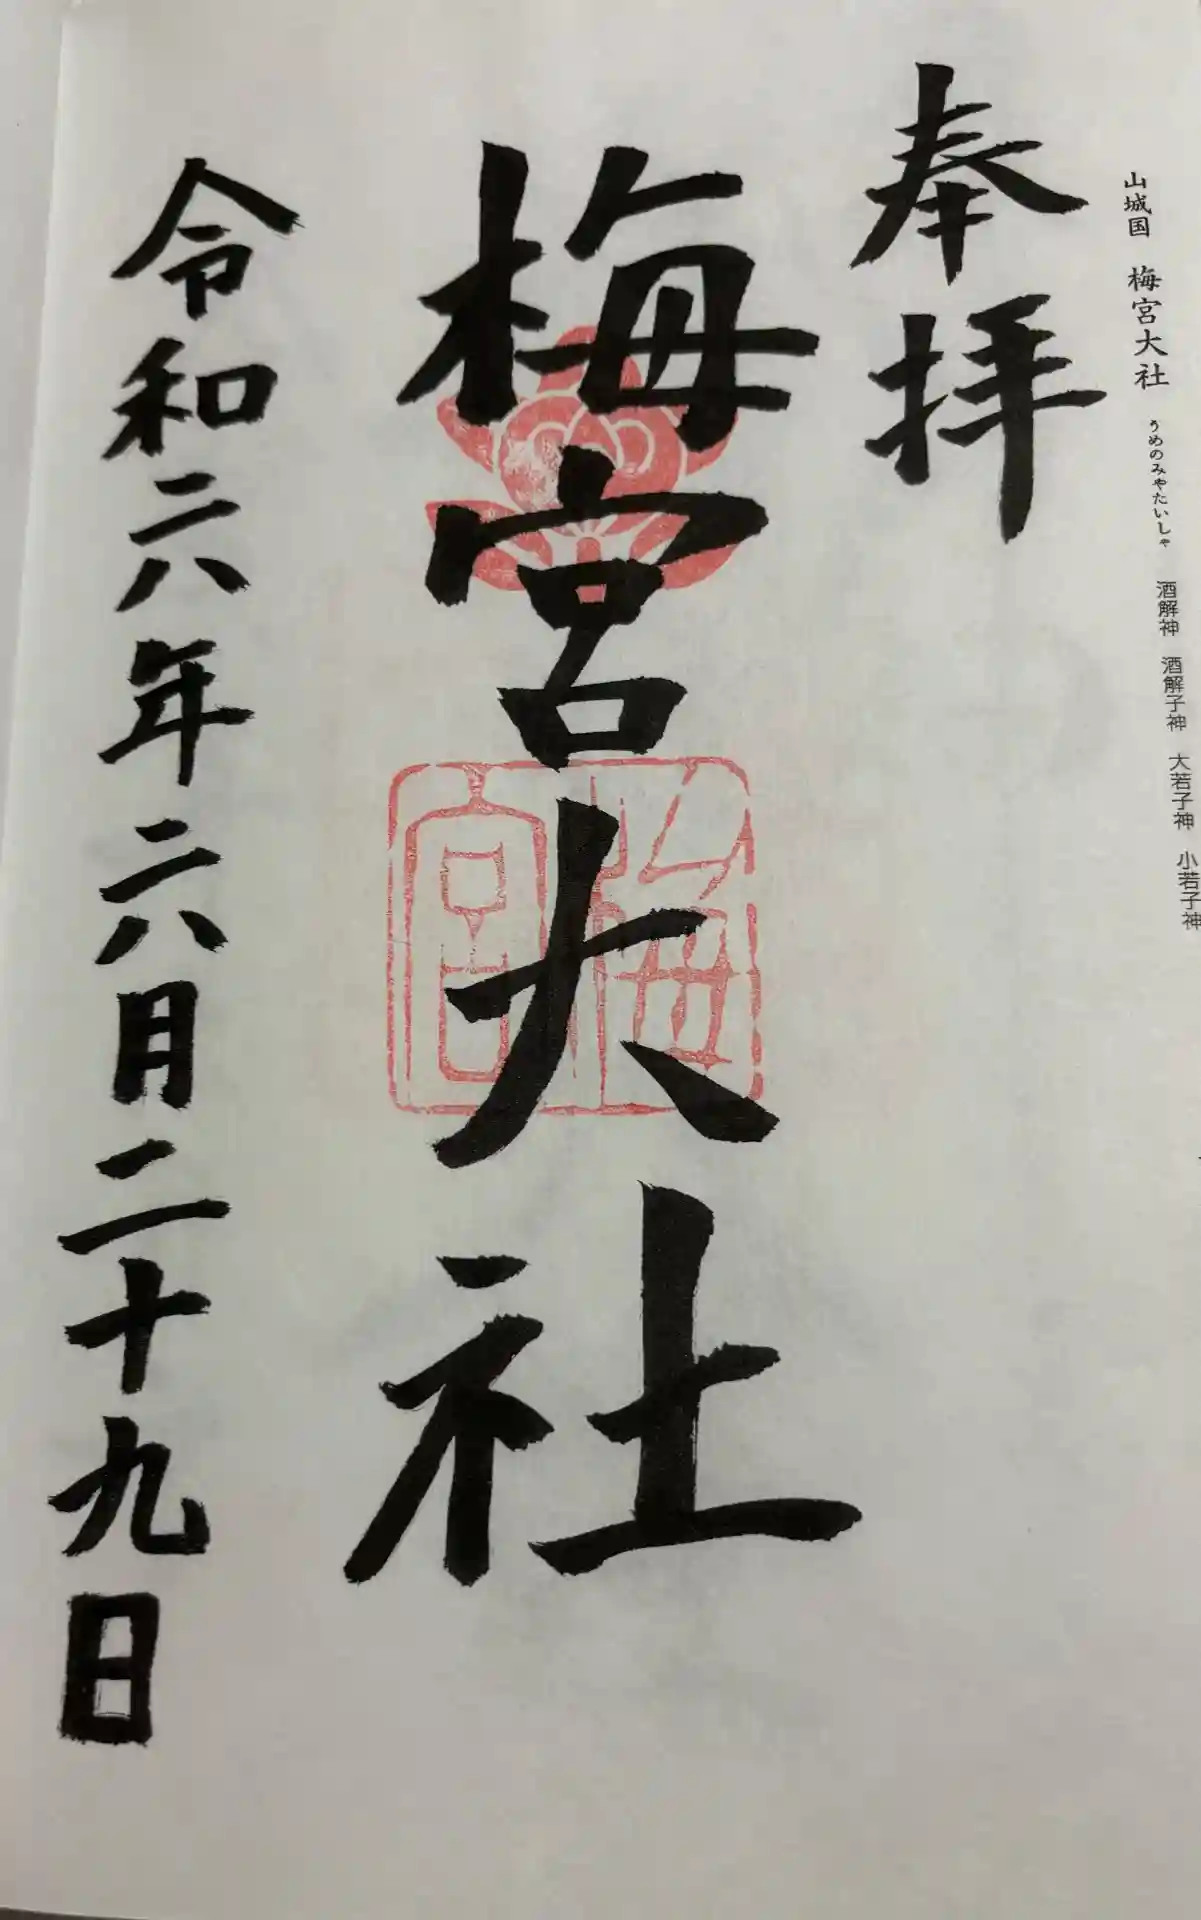 山城国　梅宮大社　うめのみやたいしゃ　酒解神　酒解子神　大若子神　小若子神
奉拝
梅宮大社
梅
宮
令和六年六月二十九日